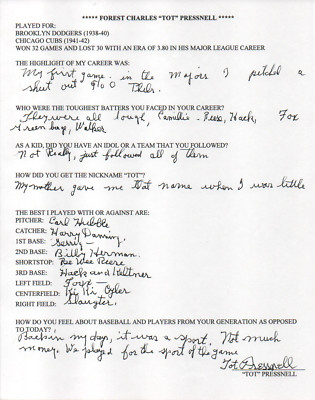 ***** FOREST CHARLES "TOT" PRESSNELL *****
PLAYED FOR:
BROOKLYN DODGERS (1938-40)
CHICAGO CUBS (1941-42)
WON 32 GAMES AND LOST 30 WITH AN ERA OF 3.80 IN HIS MAJOR LEAGUE CAREER
THE HIGHLIGHT OF MY CAREER WAS:
My first game in the Majors I pitched a
shut out 9 to 0 Phils.
WHO WERE THE TOUGHEST BATTERS YOU FACED IN YOUR CAREER?
They were all tough, Camilli - Reese, Hack, Fox
Greenburg, Walker
AS A KID, DID YOU HAVE AN IDOL OR A TEAM THAT YOU FOLLOWED?
Not Really, just followed all of them
HOW DID YOU GET THE NICKNAME "TOT"?
My mother gave me that name when I was little
THE BEST I PLAYED WITH OR AGAINST ARE:
PITCHER: Carl Hubble
CATCHER: Harry Danning
1ST BASE:
2ND BASE: Billy Herman
SHORTSTOP: Pee Wee Reese
3RD BASE: Hack and Keltner
LEFT FIELD: Foxx -
CENTERFIELD: Ki Ki
RIGHT FIELD: Slaugter
HOW DO YOU FEEL ABOUT BASEBALL AND PLAYERS FROM YOUR GENERATION AS OPPOSED
TO TODAY?
Back in my days, it was a sport. Not much
money. We played for the sport of the game
Tot Pressnell
"TOT" PRESSNELL